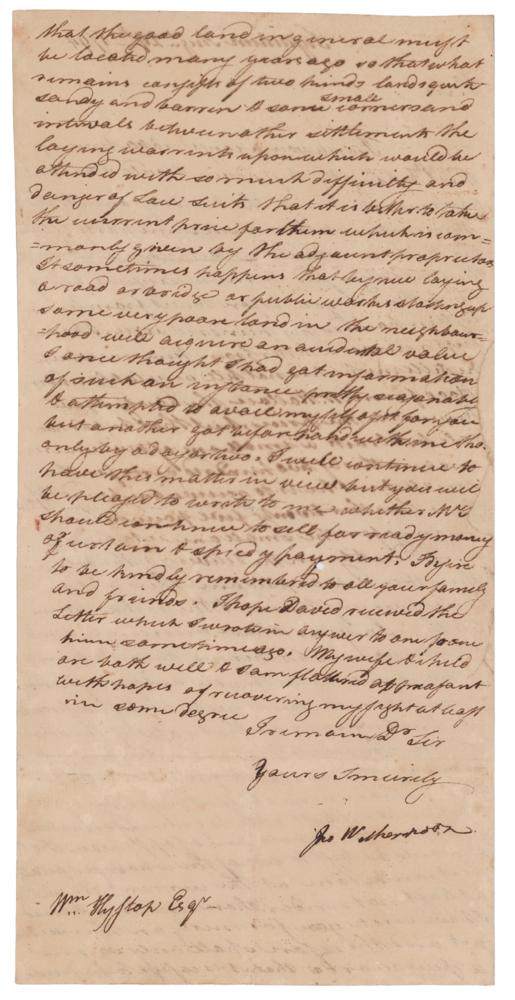 that the good land in general must
be located many years ago so that what
remains consists of two kinds lands quite
sandy and barren & some small corners and
intervals between other settlements the
laying warrants upon which would be
attended with so much difficulty and
danger of Law suits that it is better to take
the current price for them which is com=
=monly given by the adjacent proprietors
It sometimes happens that by new laying
a road or bridge or public works starting up
some very poor land in the neighbour=
=hood will acquire an accidental value
I once thought I had got information
of such an instance pretty seasonable
& attempted to avail myself of it for you
but another got before hand with me tho
only by a day or two. I will continue to
have this matter in view but you will
be pleased to write to me whether
should continue to sell for ready money
or certain & speedy payment. I desire
to be kindly remembered to all your family
and friends. I hope David received the
Letter which I wrote in answer to one from
him sometime ago. My wife & child
are both well & I am flattered at present
with hopes of recovering my sight at least
in some degree
I remain Dr Sir
Yours Sincerely
Jno Witherspoon
Wm. Hyslop Esqr